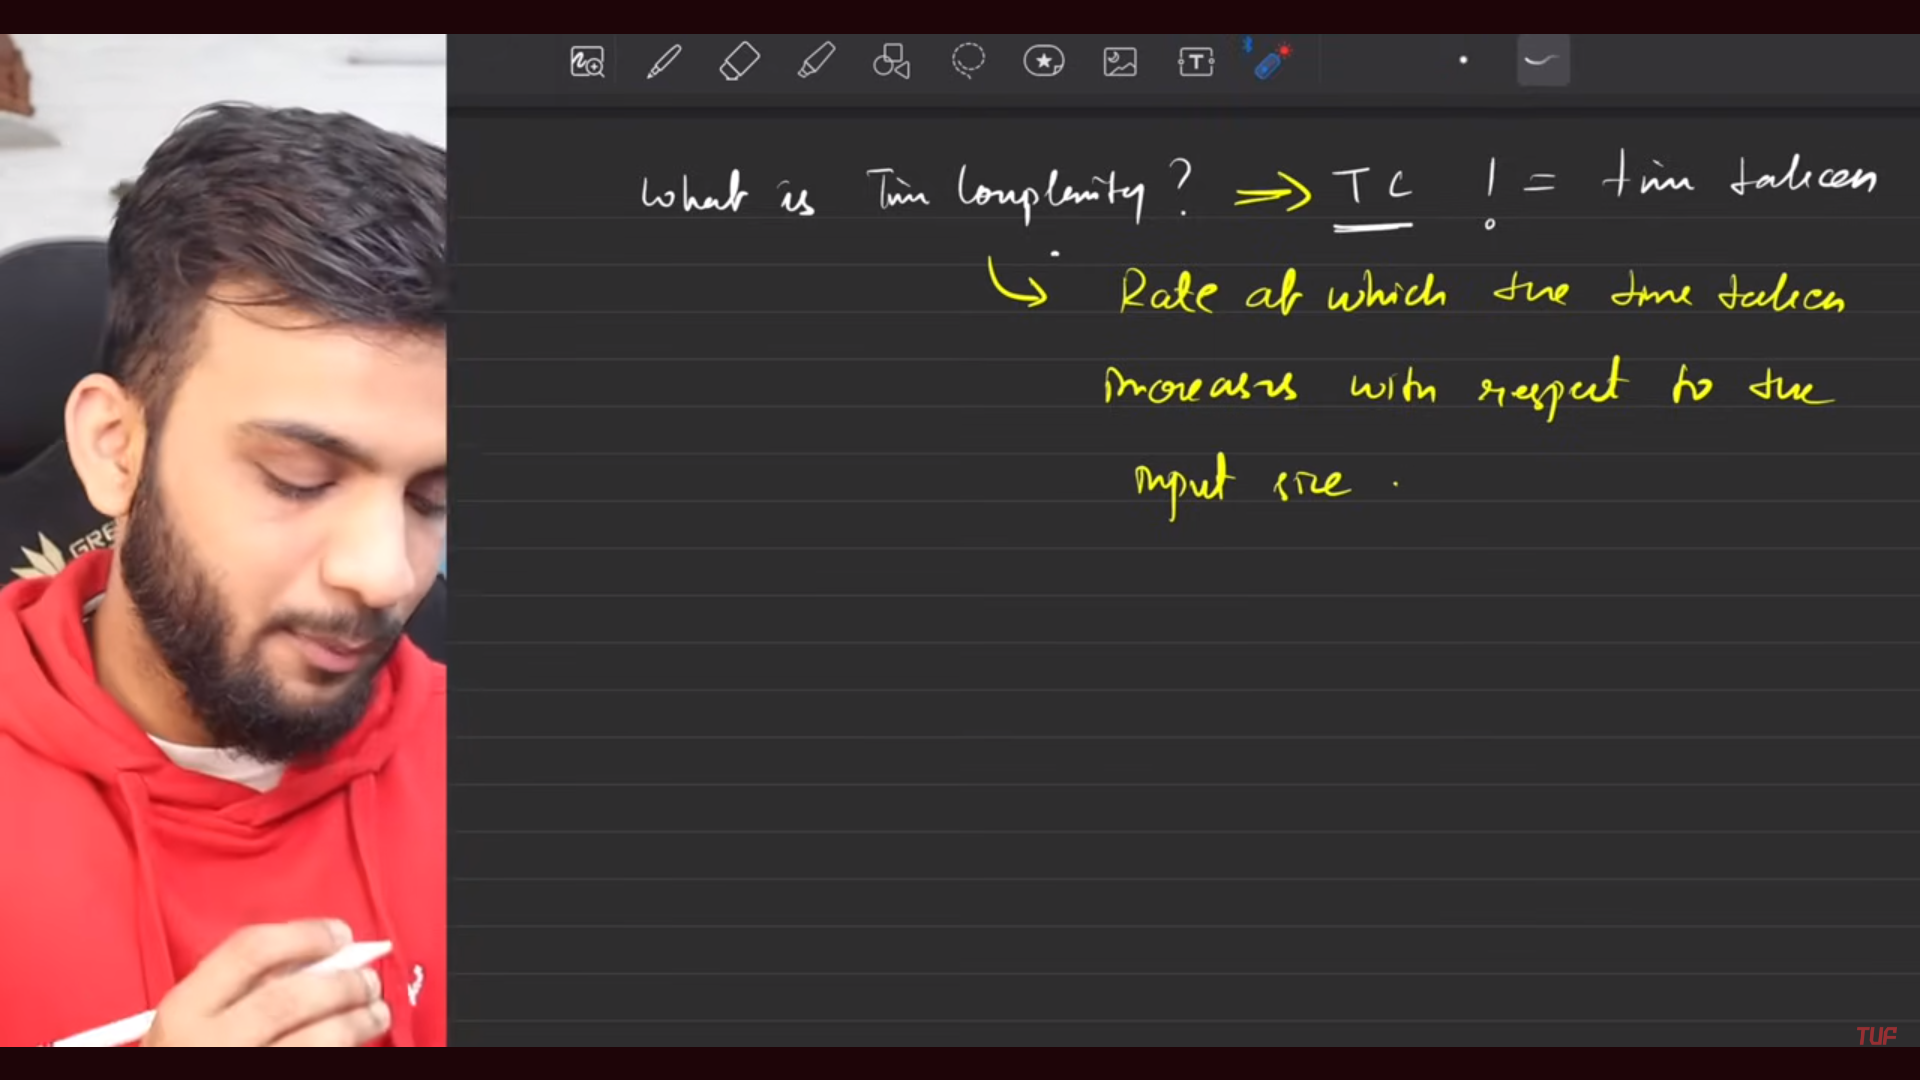 What is Time Complexity? ⇒ TC != time taken
↳ Rate at which the time taken
increases with respect to the
input size.
GRE
TUF